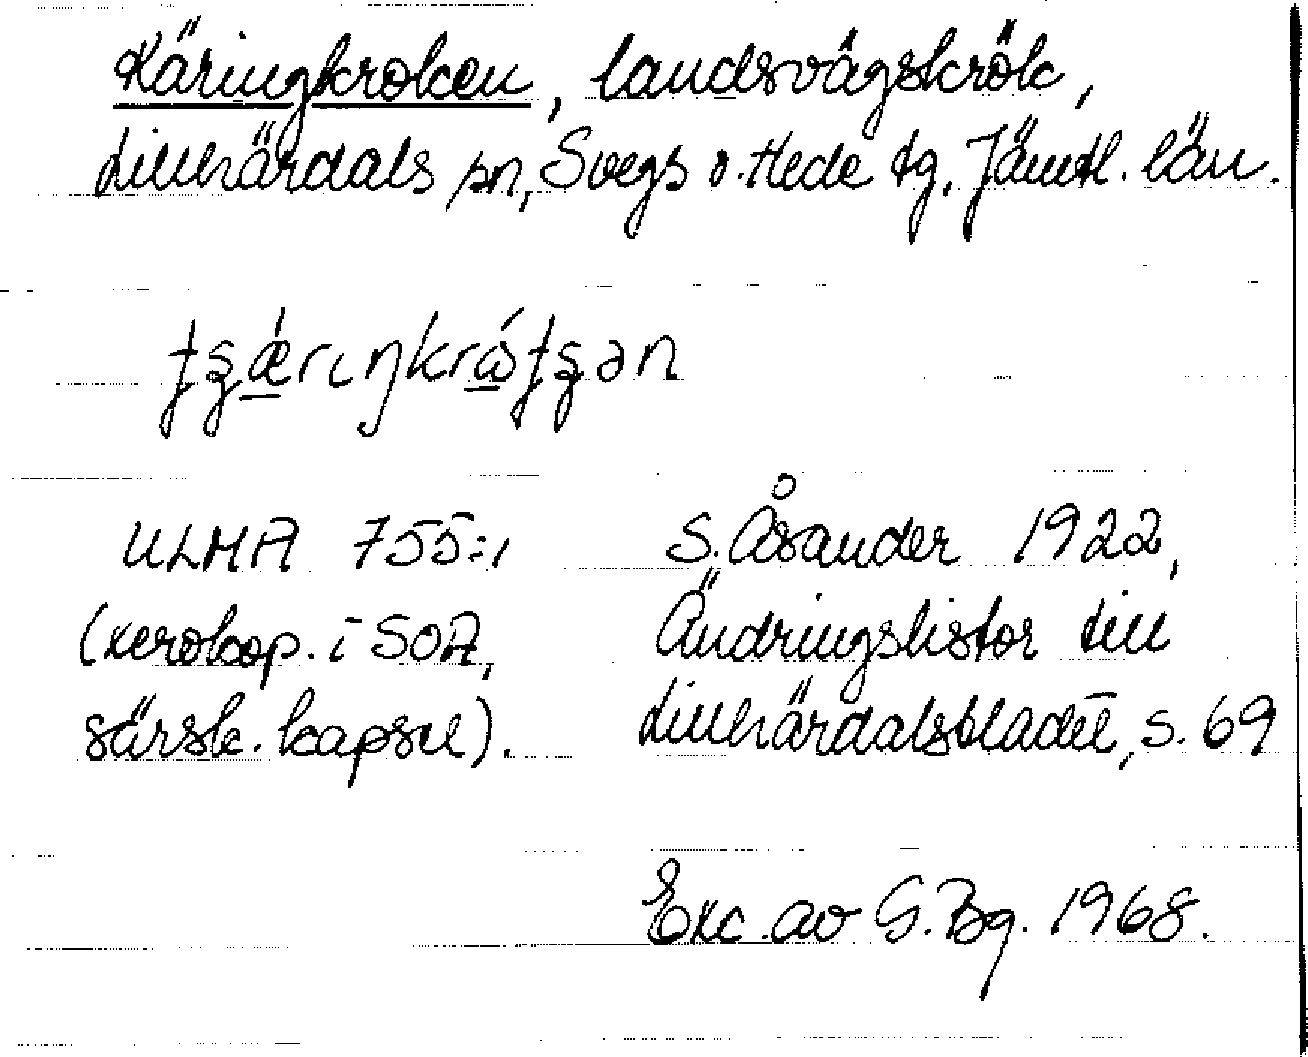 Käringkroken, landsvägskrök,
Lillhärdals sn, Svegs o. Hede tg, Jämtl. län.
ʈʂǽrıŋkrάʈʂən
ULMA 755:1
(xerokop. i SOA,
särsk. kapsel).
S. Åsander 1922,
Ändringslistor till
Lillhärdalsbladet, s. 69
Exc. av G. Bg. 1968.